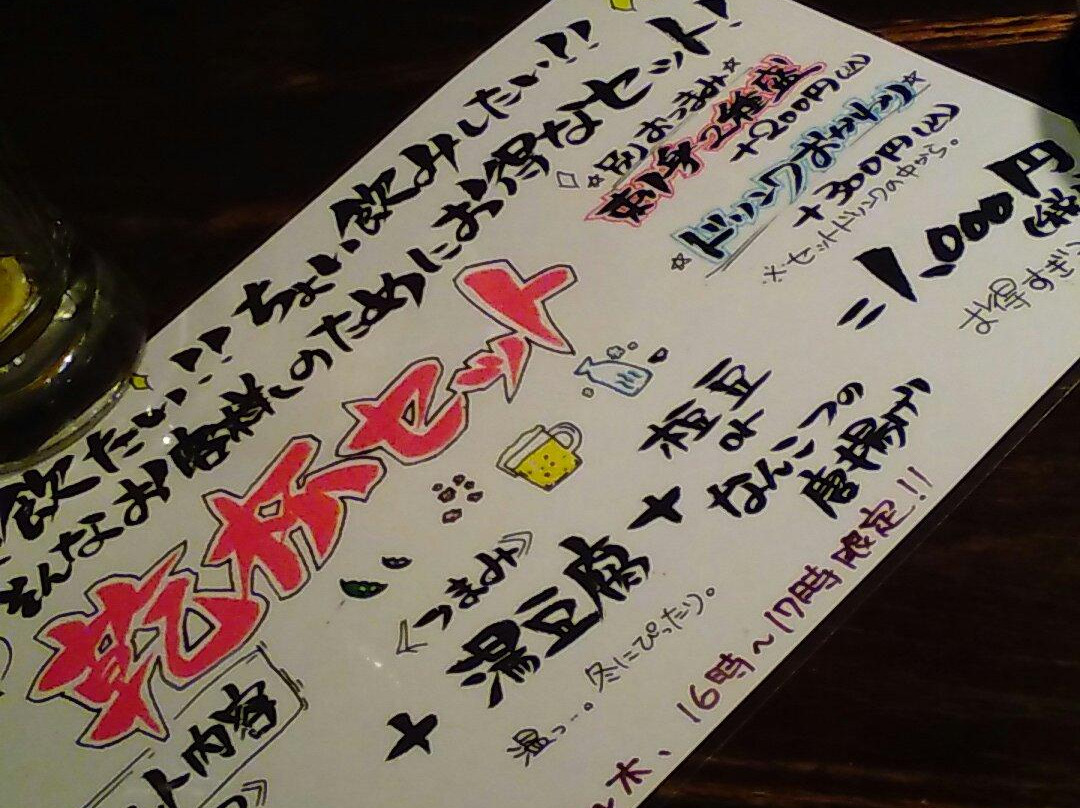 飲みたい!! ちょい飲みしたい!!
そんなお客様のためにお得なセット!
乾杯セット
ト内容
+
《つまみ》
湯豆腐
温っ…。冬にぴったり。
+
枝豆
or
なんこつの
唐揚げ
=1,000円
お得すぎ
☆別おつまみ☆
刺身2種盛
+200円(込)
☆ドリンクおかわり☆
+300円(込)
※セットドリンクの中から。
木、16時〜17時限定!!